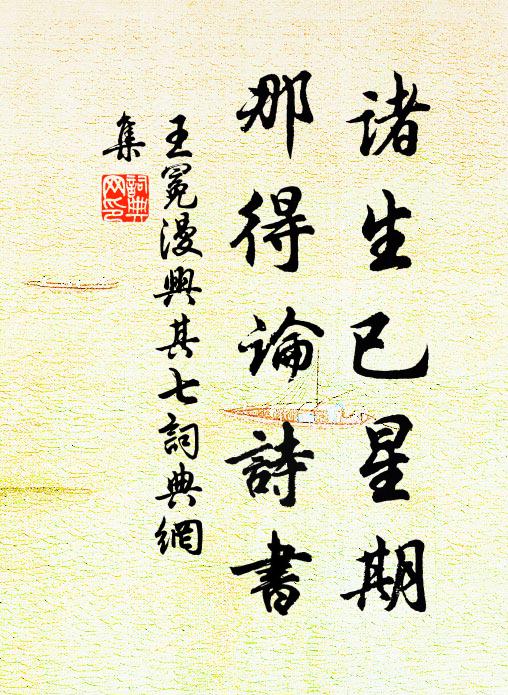 諸生已星期
那得論詩書
王冕漫興其七詞典網
集
詞典网印